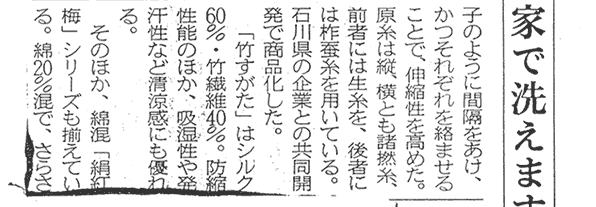 家で洗えます
子のように間隔をあけ、
かつそれぞれを絡ませる
ことで、伸縮性を高めた。
原糸は縦、横とも諸撚糸、
前者には生糸を、後者に
は柞蚕糸を用いている。
石川県の企業との共同開
発で商品化した。
「竹すがた」はシルク
60％・竹繊維40％。防縮
性能のほか、吸湿性や発
汗性など清涼感にも優れ
る。
そのほか、綿混「絹紅
梅」シリーズも揃えてい
る。綿20％混で、さらさ